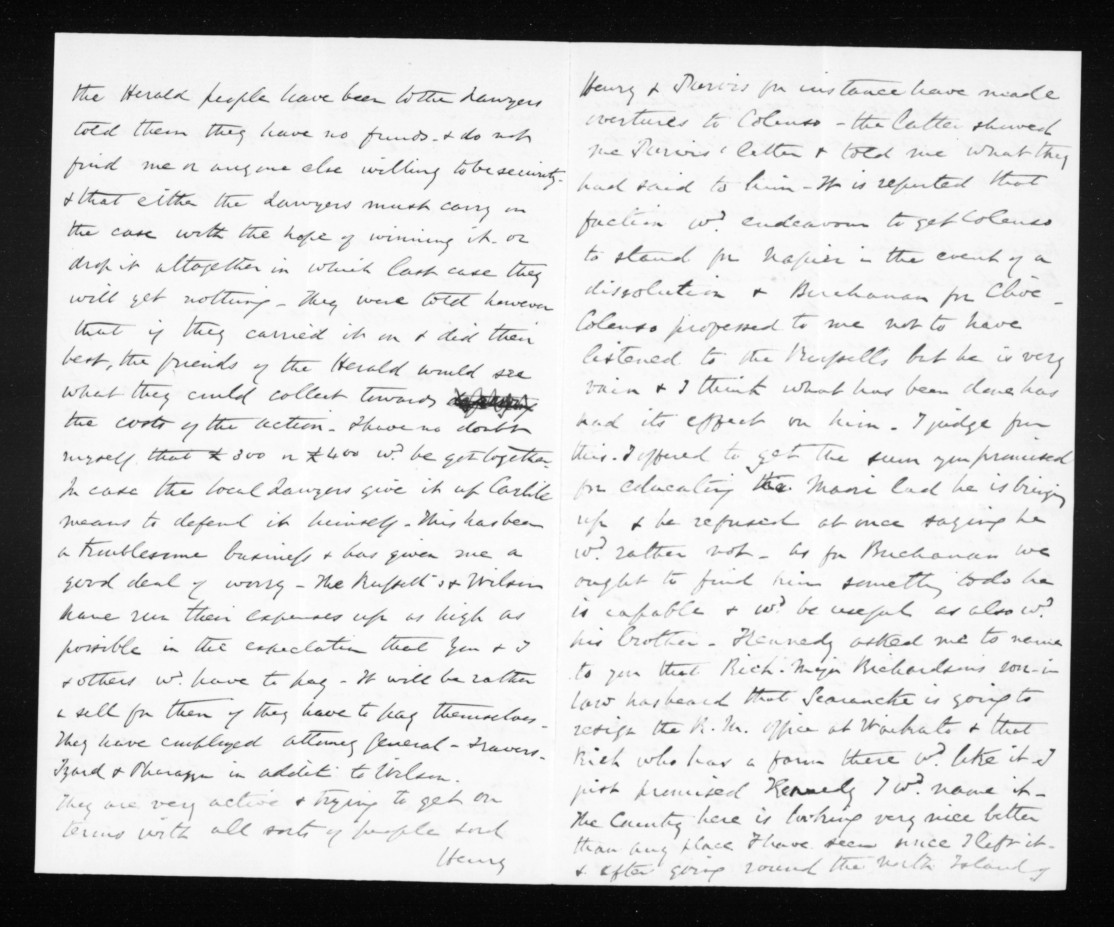 the Herald people have been to the Lawyers
told them they have no funds - & do not
find me or anyone else willing to be security -
& that either the Lawyers must carry on
the case with the hope of winning it - or
drop it altogether in which last case they
will get nothing - They were told however
that if they carried it on & did their
best, the friends of the Herald would see
what they could collect towards
the costs of the action - I have no doubt
myself that £300 or £400 wd. be got together -
In case the local Lawyers give it up Carlile
means to defend it himself - This has been
a troublesome business & has given me a
good deal of worry - The Russells & Wilson
have run their expenses up as high as
possible in the expectation that you & I
& others wd. have to pay - It will be rather
a sell for them if they have to pay themselves -
They have employed attorney General - Travers -
Izard & Pharazyn in addit to Wilson.
They are very active & trying to get on
terms with all sorts of people
Henry
Henry & Purvis for instance have made
overtures to Colenso - the latter showed
me Purvis' letter & told me what they
had said to him - It is reported that
faction wd. endeavour to get Colenso
to stand for Napier in the event of a
dissolution & Buchanan for Clive -
Colenso professed to me not to have
listened to the Russells but he is very
vain & I think what has been done has
had its effect on him - I judge from
this - I offered to get the sum you promised
for educating the Maori lad he is bringing
up & he refused at once saying he
wd. rather not - as for Buchanan we
ought to find him something to do he
is capable & wd. be useful as also wd.
his brother - Kennedy asked me to name
to you that Rich - Major Richardson's son-in
law has heard that Searancke is going to
resign the R. M. office at Waikato & that
Rich who has a farm there wd. like it I
just promised Kennedy I wd. name it -
The Country here is looking very nice better
than any place I have seen since I left it -
& after going round the North Island